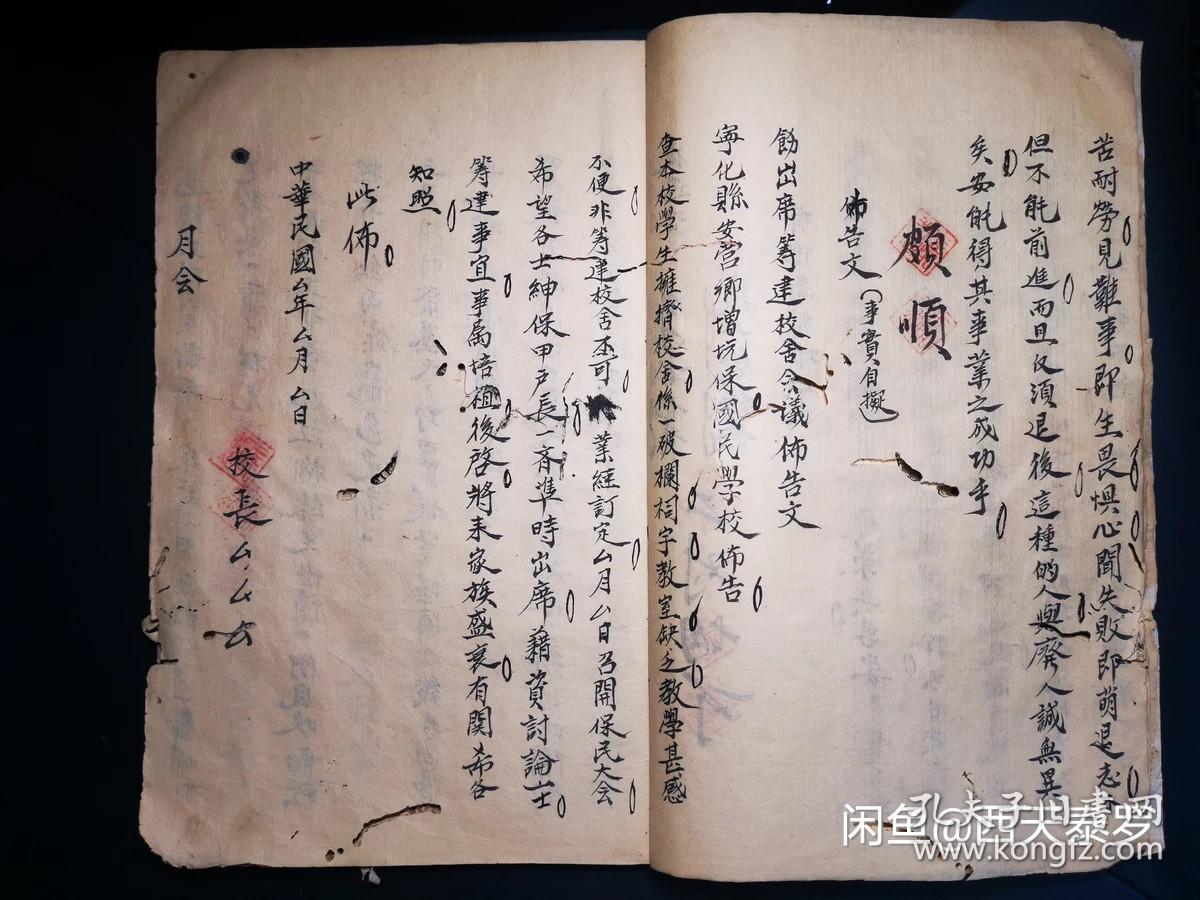 苦耐勞見難事即生畏惧心聞失敗即萌退志
但不能前進而且仅須退後這種的人與廢人誠無異
矣安能得其事業之成功乎
頗順
佈告文(事實自擬)
飭出席等建校舍会議佈告文
寧化縣安营鄉增坑保國民学校佈告
查本校學生擁擠校舍係一破欄柌宇教室缺乏教學甚感
不便非等建校舍不可業経訂定厶月厶日召開保民大会
希望各士紳保甲户長一斉準時出席藉資討論
等建事宜事属培植後啓將来家族盛衰有関希各
知照
此佈
中華民國厶年厶月厶日
校長厶厶厶
月会
闲鱼@西天泰罗
孔夫子旧書网
www.kongfz.com